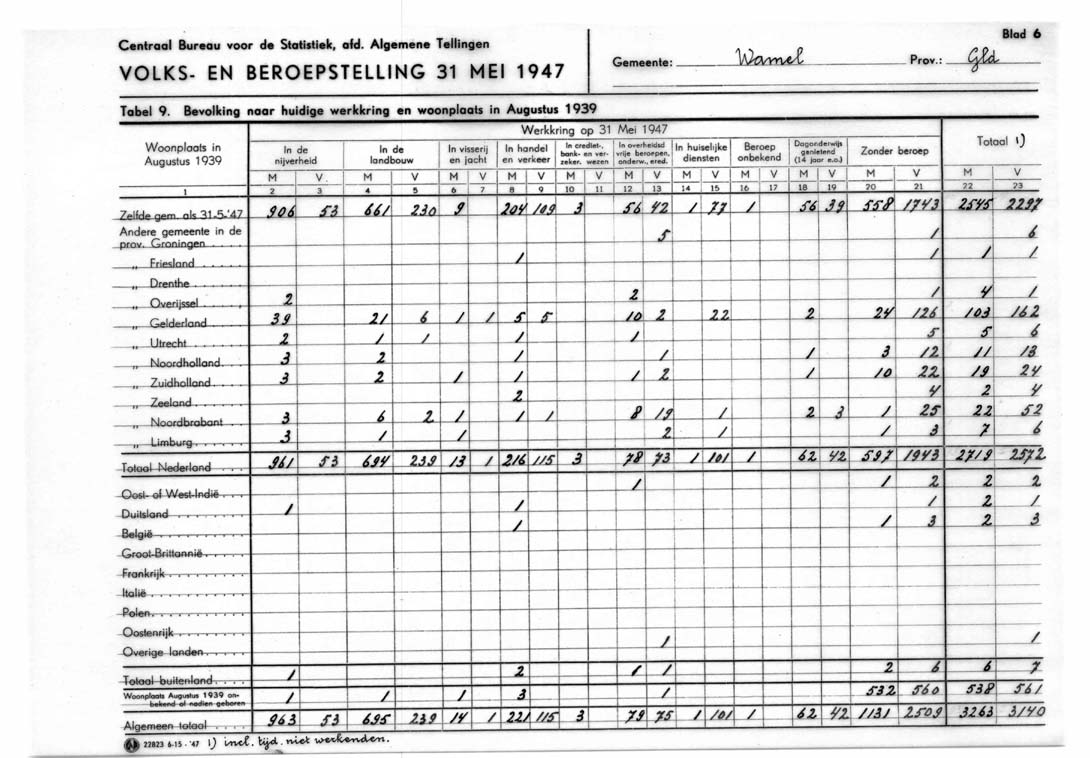 Blad 6
Centraal Bureau voor de Statistiek, afd. Algemene Tellingen
VOLKS- EN BEROEPSTELLING 31 MEI 1947
Gemeente: Wamel Prov.: Gld
Tabel 9. Bevolking naar huidige werkkring en woonplaats in Augustus 1939
Woonplaats in Augustus 1939
Werkkring op 31 Mei 1947
In de nijverheid
In de landbouw
In visserij en jacht
In handel en verkeer
In crediet-, bank- en verzeker. wezen
In overheidsd vrije beroepen, onderw., ered.
In huiselijke diensten
Beroep onbekend
Dagonderwijs genietend (14 jaar e.o.)
Zonder beroep
Totaal 1)
M V M V M V M V M V M V M V M V M V M V M V
1 2 3 4 5 6 7 8 9 10 11 12 13 14 15 16 17 18 19 20 21 22 23
Zelfde gem. als 31-5-'47 906 53 661 230 9 204 109 3 56 42 1 77 1 56 39 558 1743 2545 2297
Andere gemeente in de
prov. Groningen 5 1 6
„ Friesland 1 1 1 1
„ Drenthe
„ Overijssel 2 2 1 4 1
„ Gelderland 39 21 6 1 1 5 5 10 2 22 2 24 126 103 162
„ Utrecht 2 1 1 1 1 5 5 6
„ Noordholland 3 2 1 1 1 3 12 11 13
„ Zuidholland 3 2 1 1 1 2 1 10 22 19 24
„ Zeeland 2 4 2 4
„ Noordbrabant 3 6 2 1 1 1 8 19 1 2 3 1 25 22 52
„ Limburg 3 1 1 2 1 1 3 7 6
Totaal Nederland 961 53 694 239 13 1 216 115 3 78 73 1 101 1 62 42 597 1943 2719 2572
Oost- of West-Indië 1 1 2 2 2
Duitsland 1 1 1 2 1
België 1 1 3 2 3
Groot-Brittannië
Frankrijk
Italië
Polen
Oostenrijk
Overige landen 1 1
Totaal buitenland 1 2 1 1 2 6 6 7
Woonplaats Augustus 1939 onbekend of nadien geboren 1 1 1 3 1 532 560 538 561
Algemeen totaal 963 53 695 239 14 1 221 115 3 79 75 1 101 1 62 42 1131 2509 3263 3140
22823 6-15 - '47 1) incl. tijd. niet werkenden.